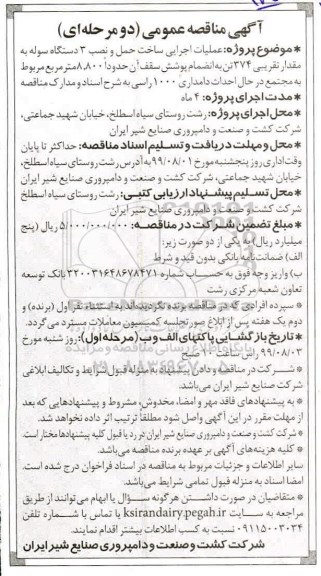 آگهی مناقصه عمومی (دو مرحله‌ای)
* موضوع پروژه: عملیات اجرایی ساخت حمل و نصب ۳ دستگاه سوله به
مقدار تقریبی ۳۷۴ تن به انضمام پوشش سقف آن حدوداً ۸,۸۰۰ مترمربع مربوط
به مجتمع در حال احداث دامداری ۱۰۰۰ راسی به شرح اسناد و مدارک مناقصه
* مدت اجرای پروژه: ۴ ماه
* محل اجرای پروژه: رشت روستای سیاه اسطلخ، خیابان شهید جماعتی،
شرکت کشت و صنعت و دامپروری صنایع شیر ایران
* محل و مهلت دریافت و تسلیم اسناد مناقصه: حداکثر تا پایان
وقت اداری روز پنجشنبه مورخ ۹۹/۰۸/۰۱ به آدرس رشت روستای سیاه اسطلخ،
خیابان شهید جماعتی، شرکت کشت و صنعت و دامپروری صنایع شیر ایران
* محل تسلیم پیشنهاد ارزیابی کتبی: رشت روستای سیاه اسطلخ
شرکت کشت و صنعت و دامپروری صنایع شیر ایران
* مبلغ تضمین شرکت در مناقصه: ۵/۰۰۰/۰۰۰/۰۰۰ ریال (پنج
میلیارد ریال) به یکی از دو صورت زیر:
الف) ضمانت‌نامه بانکی بدون قید و شرط
ب) واریز وجه فوق به حساب شماره ۳۲۰۰۳۱۶۴۸۶۷۸۴۷۱ بانک توسعه
تعاون شعبه مرکزی رشت
* سپرده افرادی که در مناقصه برنده نگردیده‌اند به استثناء نفر اول (برنده) و
دوم یک هفته پس از ابلاغ صورتجلسه کمیسیون معاملات مسترد می‌گردد.
* تاریخ بازگشایی پاکتهای الف و ب (مرحله اول): روز شنبه مورخ
۹۹/۰۸/۰۳ راس ساعت ۱۰ صبح
* شرکت در مناقصه و دادن پیشنهاد به منزله قبول شرایط و تکالیف ابلاغی
شرکت صنایع شیر ایران می‌باشد.
* به پیشنهادهای فاقد مهر و امضا، مخدوش، مشروط و پیشنهادهایی که بعد
از مهلت مقرر در این آگهی واصل شود مطلقاً ترتیب اثر داده نخواهد شد.
* شرکت کشت و صنعت و دامپروری صنایع شیر ایران در رد یا قبول کلیه پیشنهادها مختار است.
* کلیه هزینه‌های آگهی بر عهده برنده مناقصه می‌باشد.
سایر اطلاعات و جزئیات مربوط به مناقصه در اسناد فراخوان درج شده است.
امضا اسناد به منزله قبول تمامی شرایط می‌باشد.
* متقاضیان در صورت داشتن هرگونه سؤال یا ابهام می‌توانند از طریق
مراجعه به سایت ksirandairy.pegah.ir یا تماس با شماره تلفن
۰۹۱۱۵۰۰۳۰۳۴ نسبت به کسب اطلاعات بیشتر اقدام نمایند.
شرکت کشت و صنعت و دامپروری صنایع شیر ایران